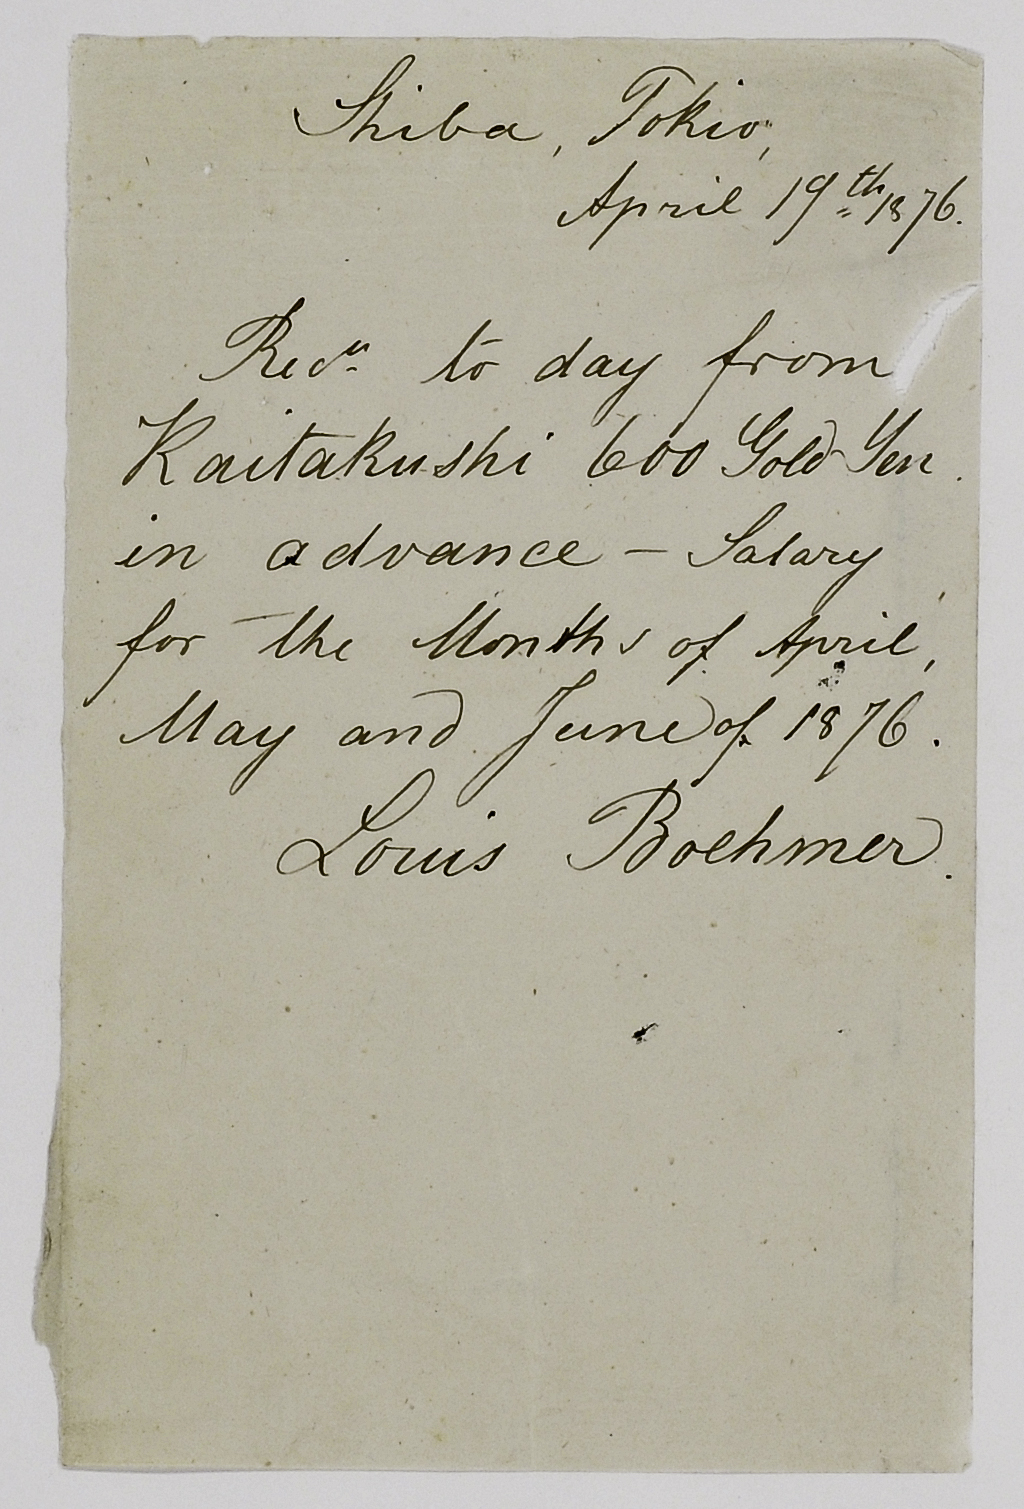 Shiba, Tokio,
April 19th, 1876.
Recd to day from
Kaitakushi 600 Gold Yen
in advance – Salary
for the Months of April,
May and June of 1876.
Louis Boehmer.